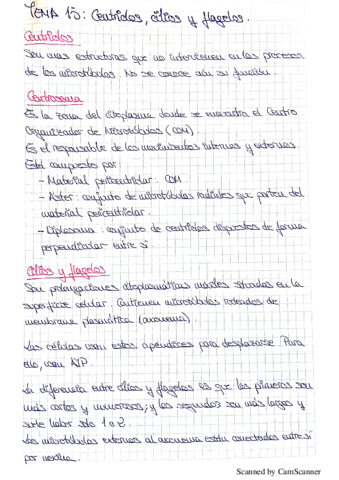 TEMA 15: Centriolos, cilios y flagelos.
Centriolos
Son unas estructuras que no intervienen en los procesos
de los microtúbulos. No se conoce aún su función.
Centrosoma
Es la zona del citoplasma donde se encuentra el Centro
Organizador de Microtúbulos (COM).
Es el responsable de los movimientos internos y externos.
Está compuesto por:
- Material pericentriolar: COM
- Áster: conjunto de microtúbulos radiales que parten del
material pericentriolar.
- Diplosoma: conjunto de centriolos dispuestos de forma
perpendicular entre sí.
Cilios y flagelos
Son prolongaciones citoplasmáticas móviles situadas en la
superficie celular. Contienen microtúbulos rodeados de
membrana plasmática (axonema).
Las células usan estos apéndices para desplazarse. Para
ello, usan ATP.
La diferencia entre cilios y flagelos es que los primeros son
más cortos y numerosos; y los segundos son más largos y
suele haber solo 1 o 2.
Los microtúbulos externos al axonema están conectados entre sí
por nexina.
Scanned by CamScanner